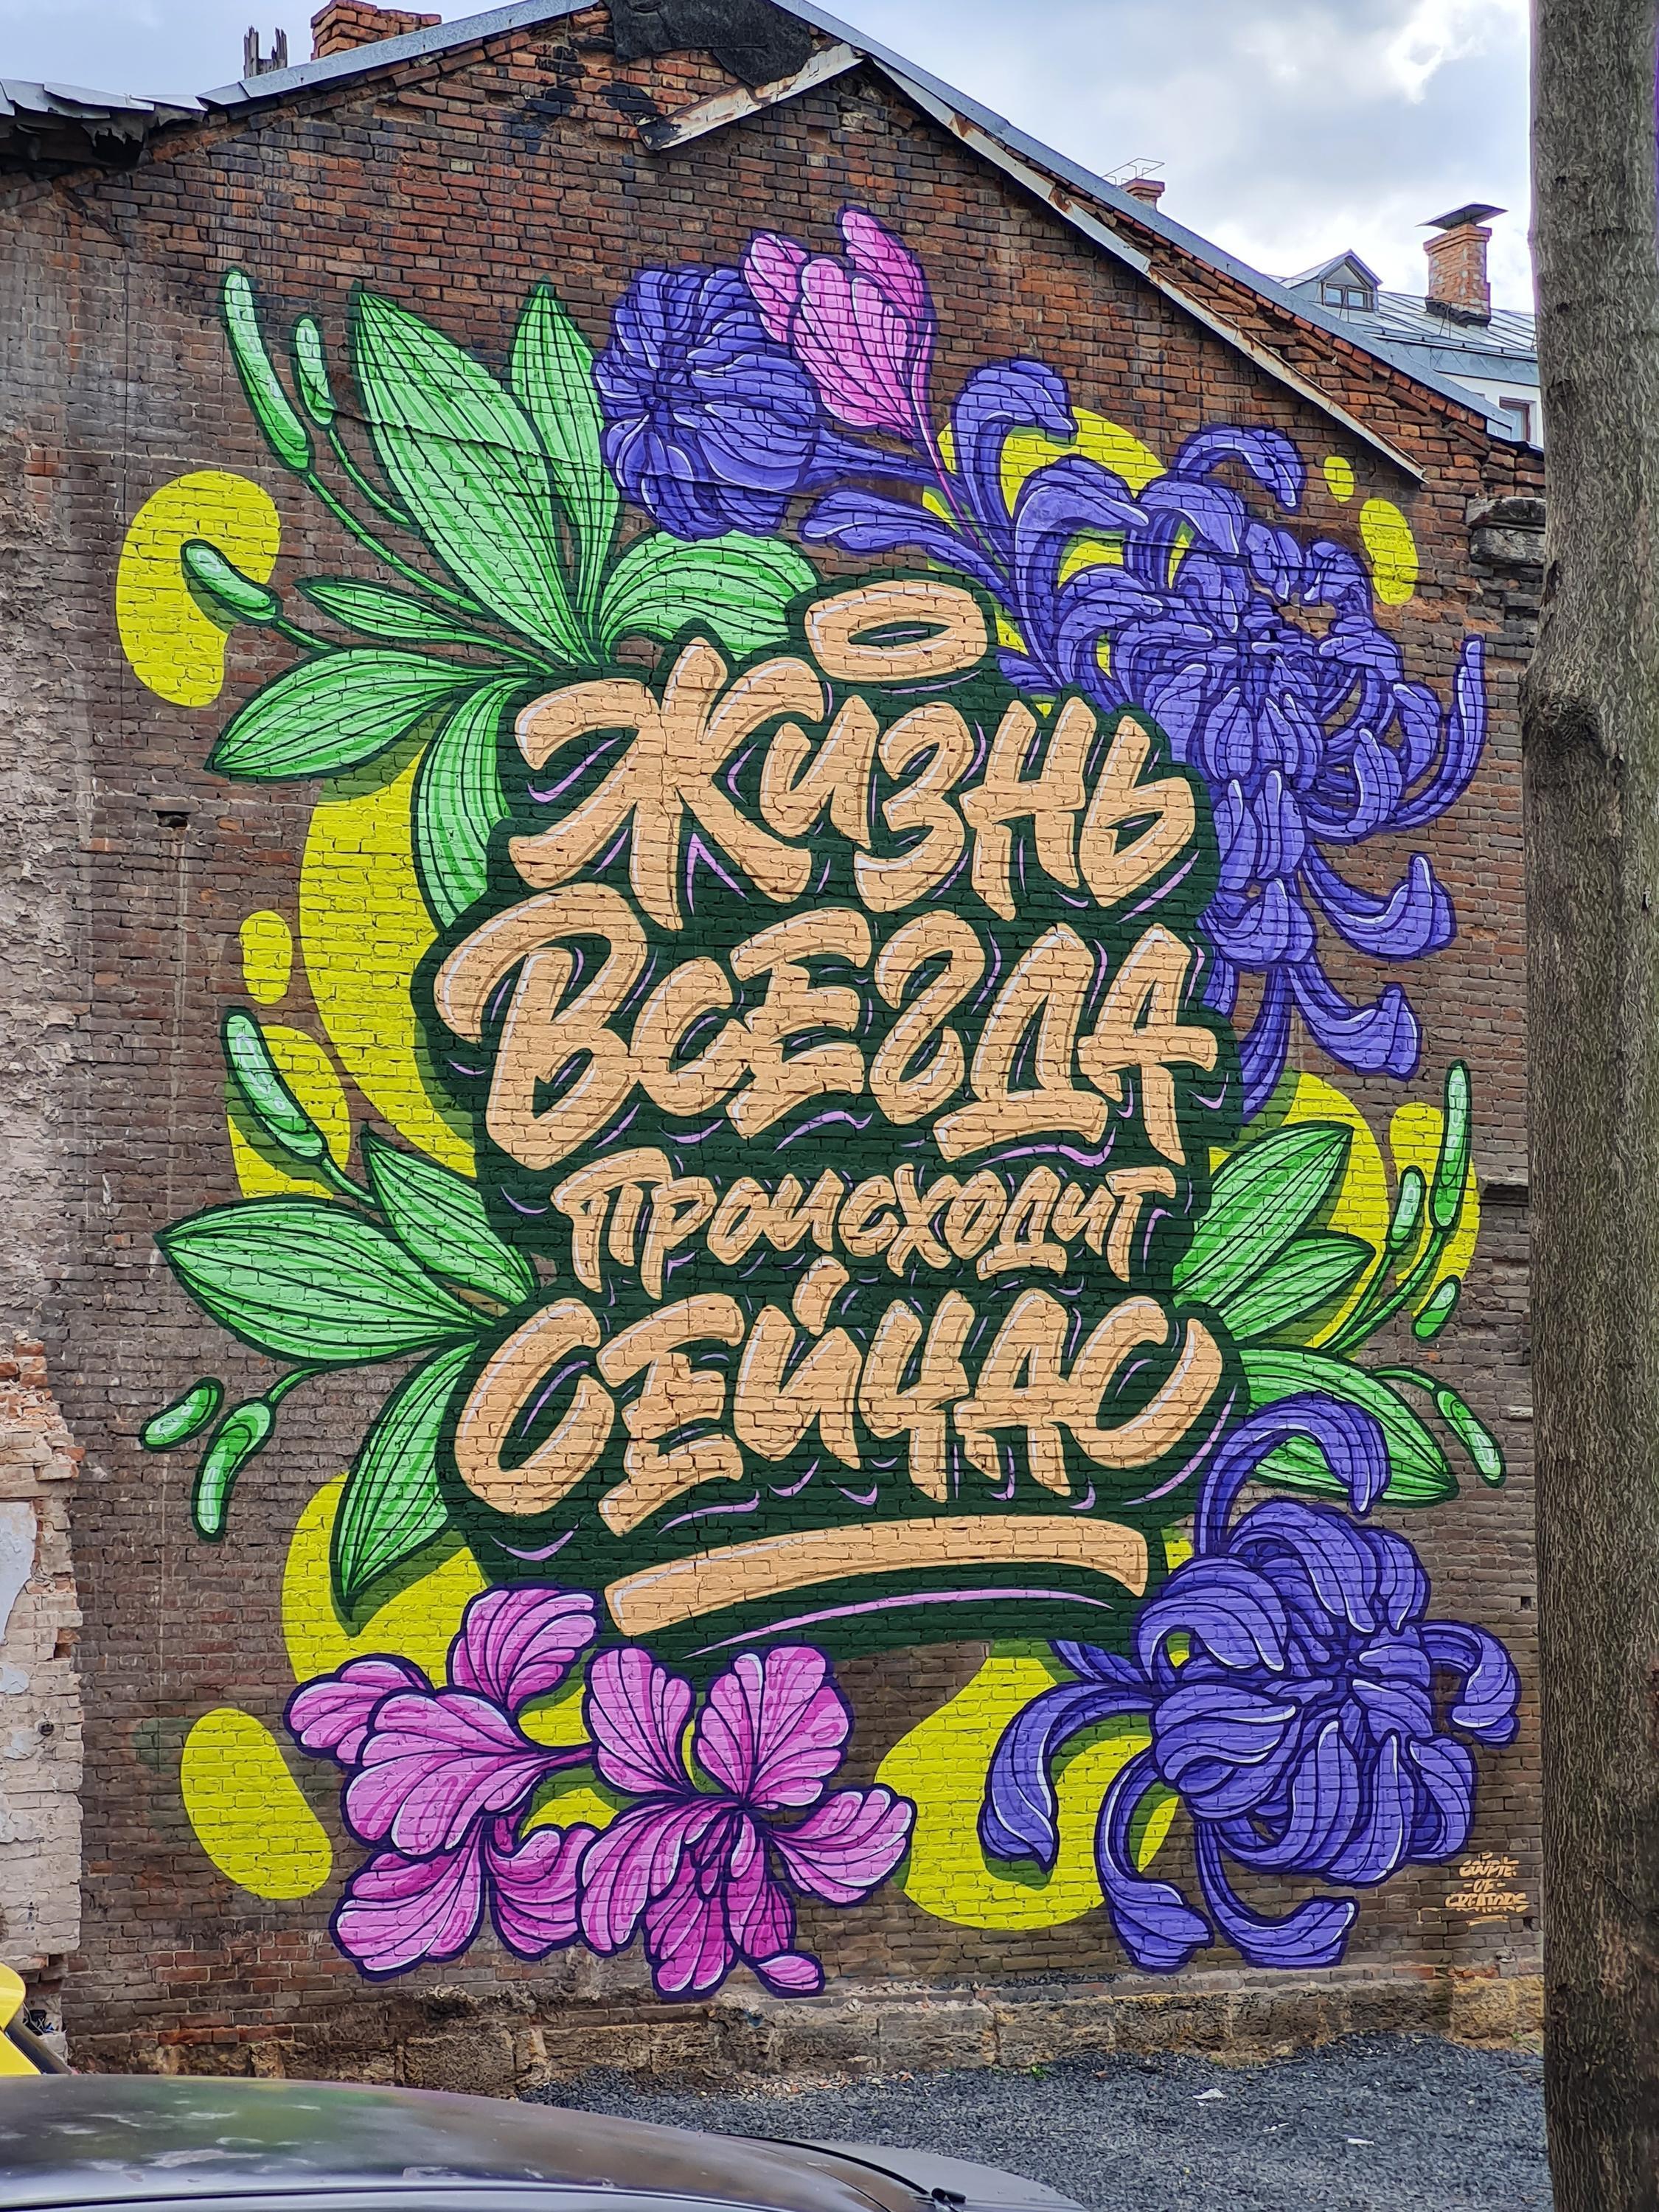 Жизнь
Всегда
происходит
сейчас
COUPLE
-OF-
CREATORS